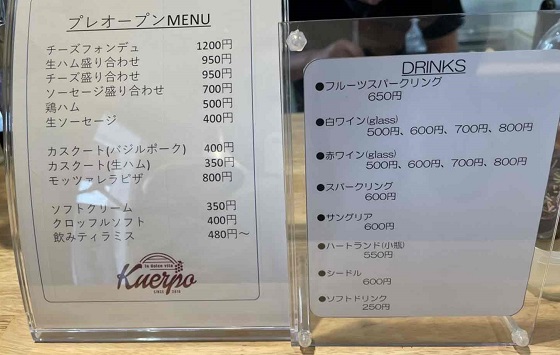 プレオープンMENU
チーズフォンデュ 1200円
生ハム盛り合わせ 950円
チーズ盛り合わせ 950円
ソーセージ盛り合わせ 700円
鶏ハム 500円
生ソーセージ 400円
カスクート(バジルポーク) 400円
カスクート(生ハム) 350円
モッツァレラピザ 800円
ソフトクリーム 350円
クロッフルソフト 400円
飲みティラミス 480円～
la dolce vita
Kuerpo
DRINKS
●フルーツスパークリング
650円
●白ワイン(glass)
500円、600円、700円、800円
●赤ワイン(glass)
500円、600円、700円、800円
●スパークリング
600円
●サングリア
600円
●ハートランド(小瓶)
550円
●シードル
600円
●ソフトドリンク
250円